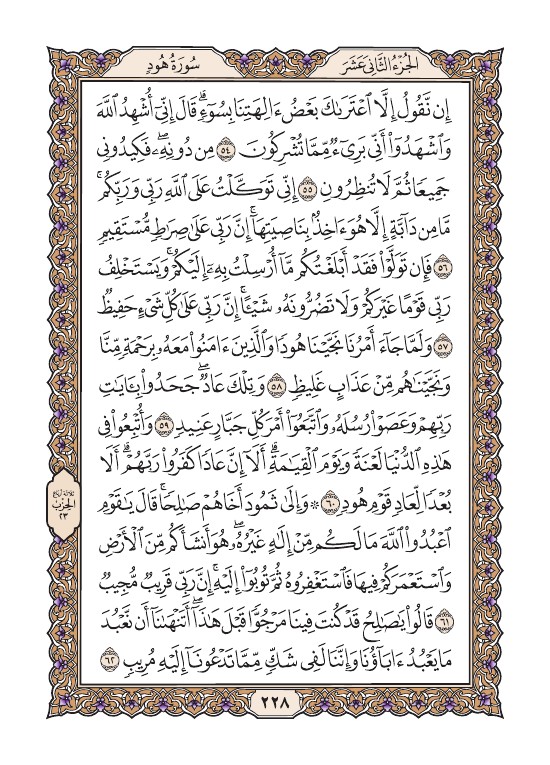 الجُزْءُ الثَّانِيَ عَشَرَ
سُورَةُ هُودٍ
إِن نَّقُولُ إِلَّا ٱعْتَرَىٰكَ بَعْضُ ءَالِهَتِنَا بِسُوٓءٍۗ قَالَ إِنِّيٓ أُشْهِدُ ٱللَّهَ
وَٱشْهَدُوٓاْ أَنِّي بَرِيٓءٞ مِّمَّا تُشْرِكُونَ ٥٤ مِن دُونِهِۦۖ فَكِيدُونِي
جَمِيعٗا ثُمَّ لَا تُنظِرُونِ ٥٥ إِنِّي تَوَكَّلْتُ عَلَى ٱللَّهِ رَبِّي وَرَبِّكُمۚ
مَّا مِن دَآبَّةٍ إِلَّا هُوَ ءَاخِذُۢ بِنَاصِيَتِهَآۚ إِنَّ رَبِّي عَلَىٰ صِرَٰطٖ مُّسْتَقِيمٖ
٥٦ فَإِن تَوَلَّوْاْ فَقَدْ أَبْلَغْتُكُم مَّآ أُرْسِلْتُ بِهِۦٓ إِلَيْكُمْۚ وَيَسْتَخْلِفُ
رَبِّي قَوْمًا غَيْرَكُمْ وَلَا تَضُرُّونَهُۥ شَيْـًٔاۚ إِنَّ رَبِّي عَلَىٰ كُلِّ شَيْءٍ حَفِيظٞ
٥٧ وَلَمَّا جَآءَ أَمْرُنَا نَجَّيْنَا هُودٗا وَٱلَّذِينَ ءَامَنُواْ مَعَهُۥ بِرَحْمَةٖ مِّنَّا
وَنَجَّيْنَٰهُم مِّنْ عَذَابٍ غَلِيظٖ ٥٨ وَتِلْكَ عَادٞۖ جَحَدُواْ بِـَٔايَٰتِ
رَبِّهِمْ وَعَصَوْاْ رُسُلَهُۥ وَٱتَّبَعُوٓاْ أَمْرَ كُلِّ جَبَّارٍ عَنِيدٖ ٥٩ وَأُتْبِعُواْ فِي
هَٰذِهِ ٱلدُّنْيَا لَعْنَةٗ وَيَوْمَ ٱلْقِيَٰمَةِۗ أَلَآ إِنَّ عَادٗا كَفَرُواْ رَبَّهُمْۗ أَلَا
بُعْدٗا لِّعَادٖ قَوْمِ هُودٖ ٦٠ ۞ وَإِلَىٰ ثَمُودَ أَخَاهُمْ صَٰلِحٗاۚ قَالَ يَٰقَوْمِ
ٱعْبُدُواْ ٱللَّهَ مَا لَكُم مِّنْ إِلَٰهٍ غَيْرُهُۥۖ هُوَ أَنشَأَكُم مِّنَ ٱلْأَرْضِ
وَٱسْتَعْمَرَكُمْ فِيهَا فَٱسْتَغْفِرُوهُ ثُمَّ تُوبُوٓاْ إِلَيْهِۚ إِنَّ رَبِّي قَرِيبٞ مُّجِيبٞ
٦١ قَالُواْ يَٰصَٰلِحُ قَدْ كُنتَ فِينَا مَرْجُوّٗا قَبْلَ هَٰذَآۖ أَتَنْهَىٰنَآ أَن نَّعْبُدَ
مَا يَعْبُدُ ءَابَآؤُنَا وَإِنَّنَا لَفِي شَكّٖ مِّمَّا تَدْعُونَآ إِلَيْهِ مُرِيبٖ ٦٢
ثلاثة أرباع
الحزب
٢٣
٢٢٨